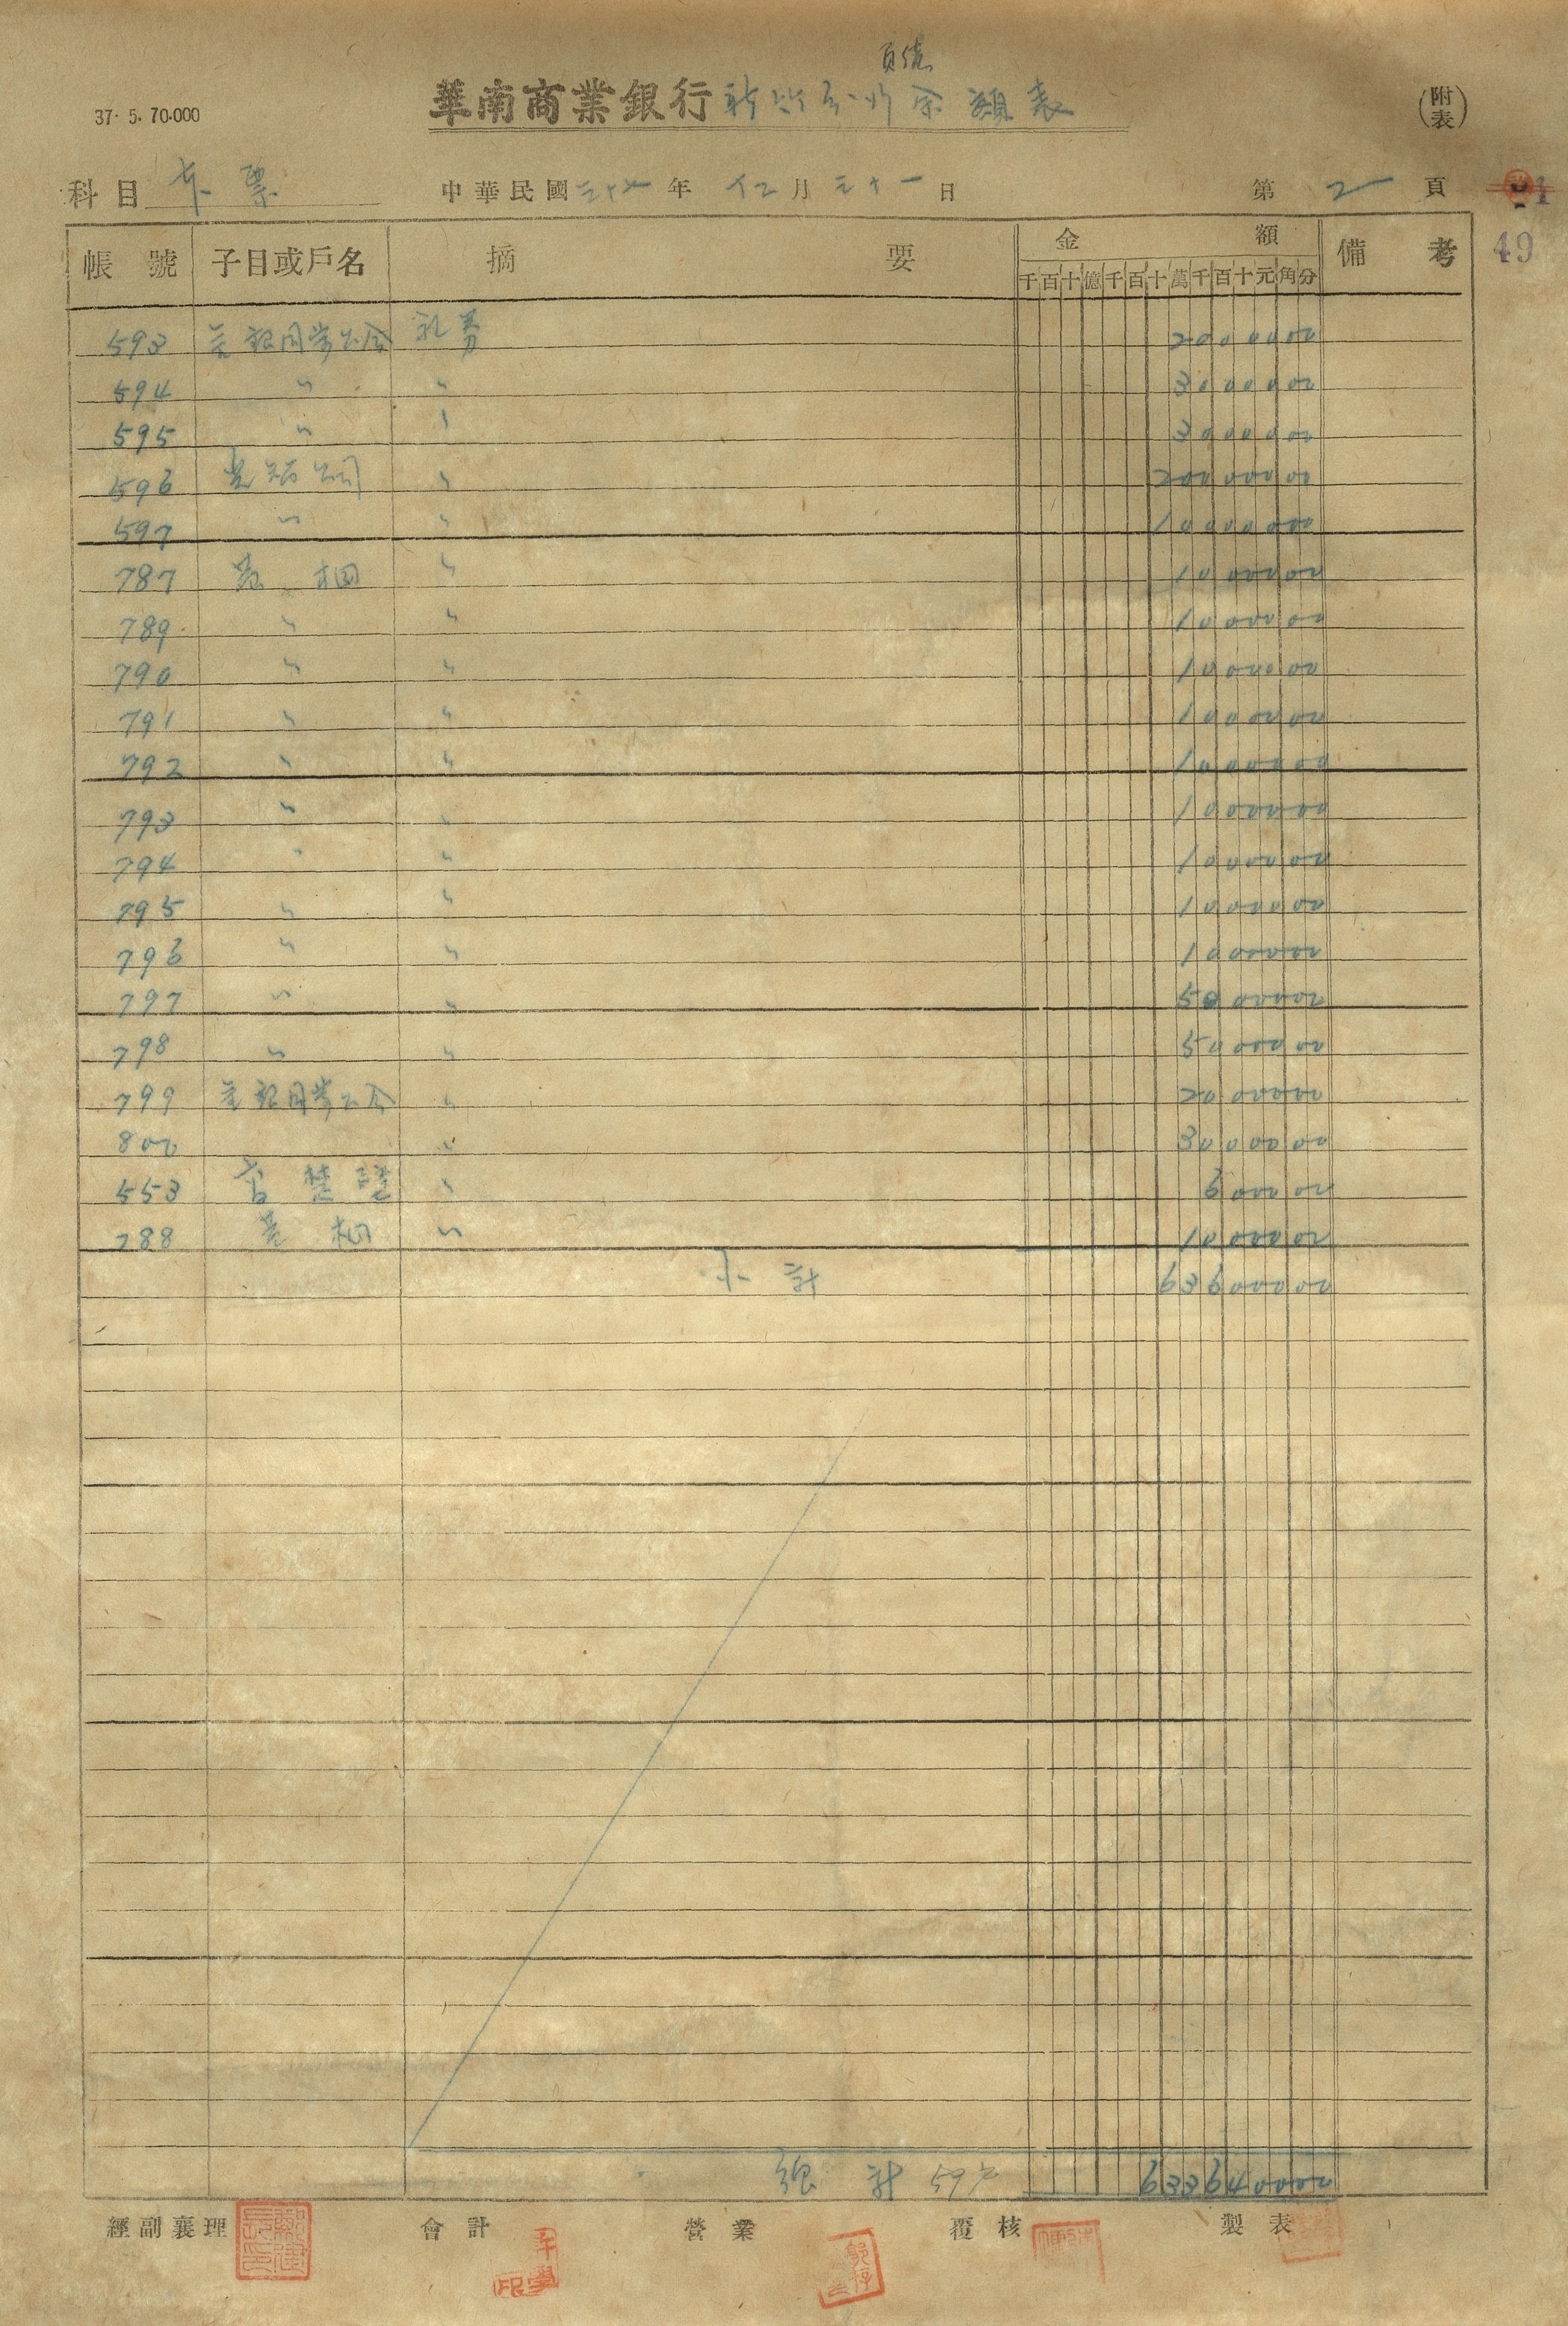 負債
華南商業銀行新竹分行余額表
37. 5. 70.000
(附表)
科目 本票 中華民國三十七年 十二月三十一日 第 2 頁
49
帳號 子目或戶名 摘要 金額 備考
千百十億千百十萬千百十元角分
593 同業公会 礼券 2000000
594 〃 〃 3000000
595 〃 〃 3000000
596 〃 20000000
597 〃 〃 10000000
787 黃 〃 1000000
789 〃 〃 1000000
790 〃 〃 1000000
791 〃 〃 1000000
792 〃 〃 1000000
793 〃 〃 1000000
794 〃 〃 1000000
795 〃 〃 1000000
796 〃 〃 1000000
797 〃 〃 5000000
798 〃 〃 5000000
799 同業公会 〃 2000000
800 〃 3000000
553 楚 〃 600000
788 黃 〃 1000000
小計 63600000
總計 59 633640000
經副襄理 會計 營業 覆核 製表